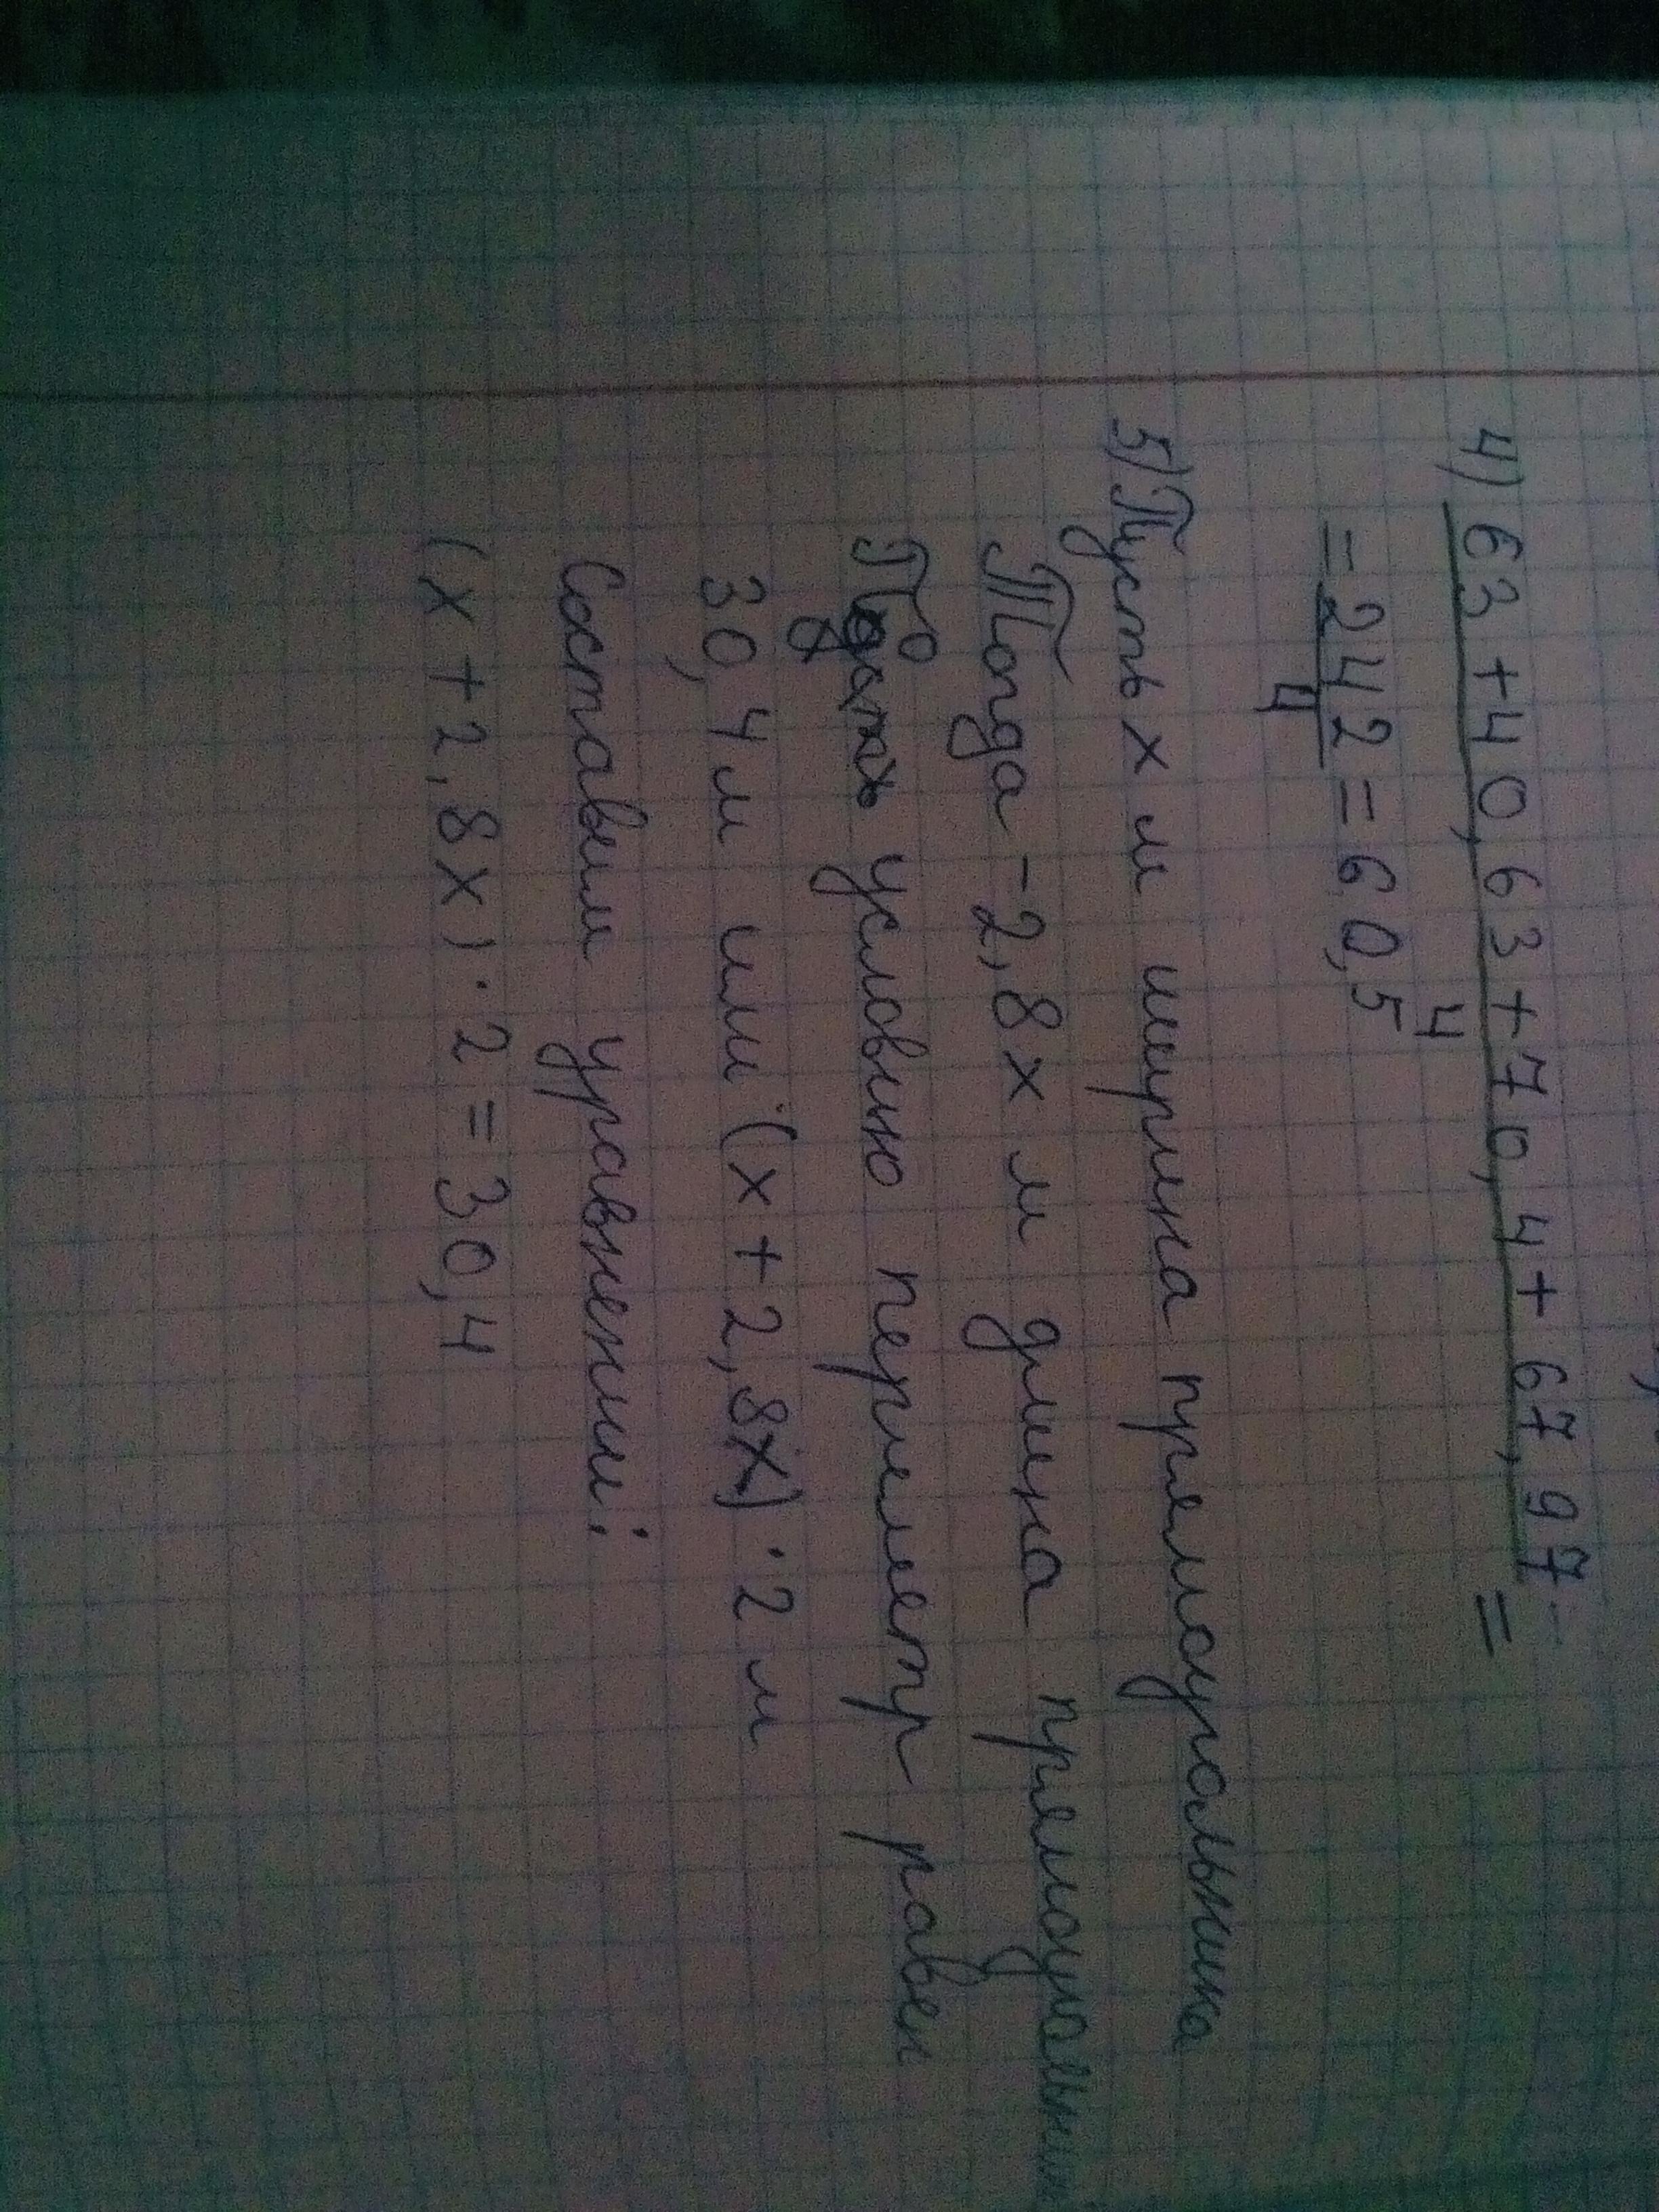 4) 63+40,63+70,4+67,97 =
4
= 242 = 60,5
4
5) Пусть x м ширина прямоугольника
Тогда - 2,8x м длина прямоугольник
По условию периметр равен
30,4 м или (x + 2,8x) · 2 м
Составим уравнении:
(x + 2,8x) · 2 = 30,4